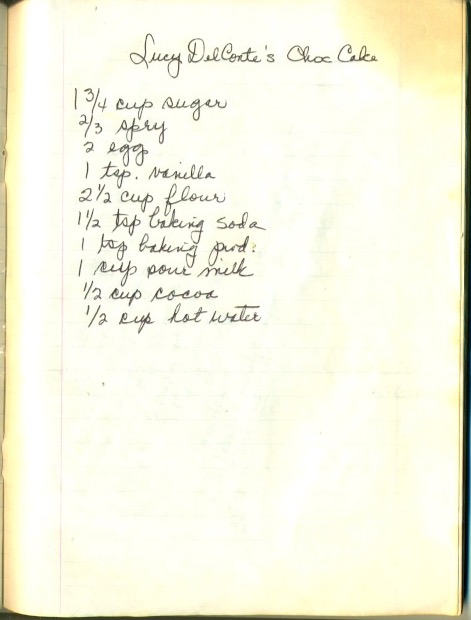 Lucy DelConte's Choc Cake
1 3/4 cup sugar
2/3 spry
2 egg
1 tsp. vanilla
2 1/2 cup flour
1 1/2 tsp baking soda
1 tsp baking pwd.
1 cup sour milk
1/2 cup cocoa
1/2 cup hot water